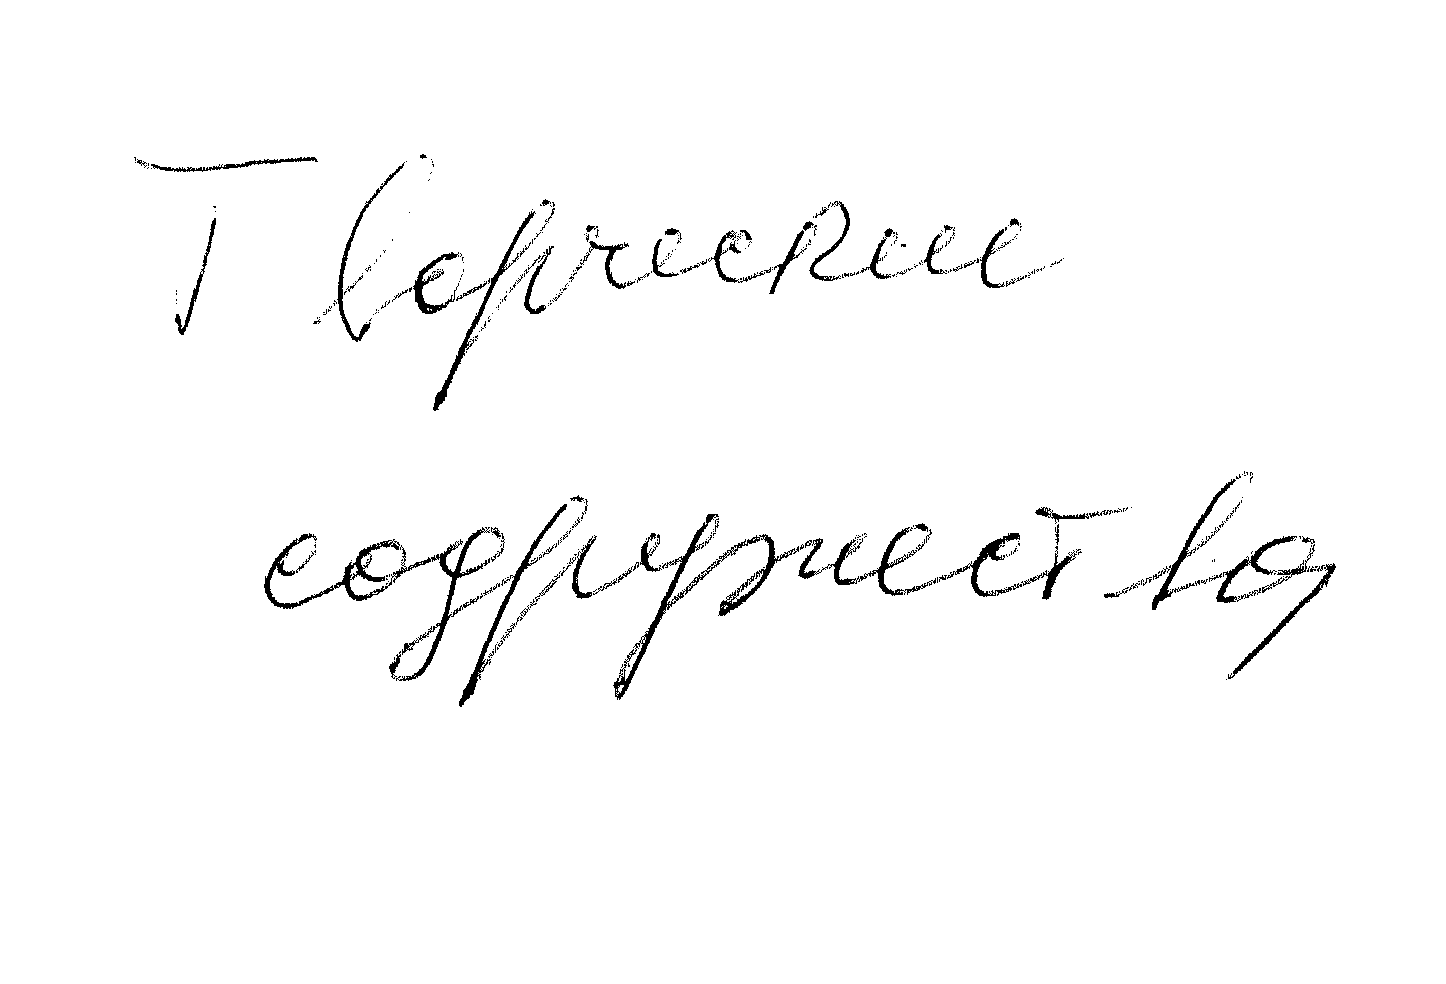 Творческие
содружества